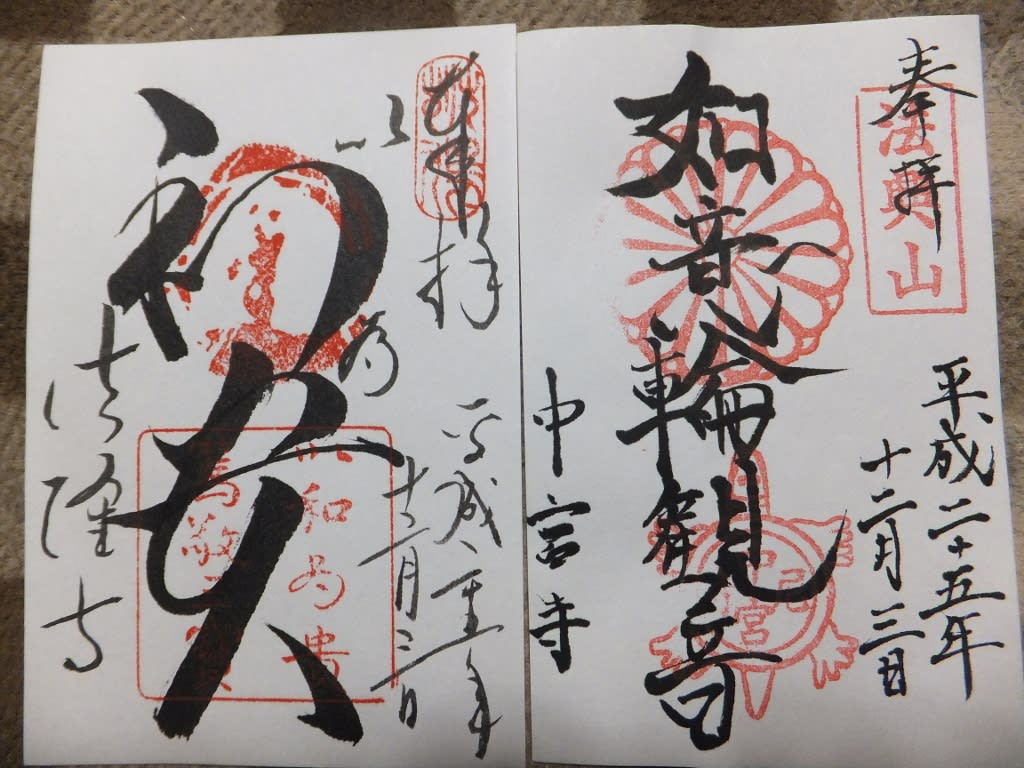 奉拜
法興山
平成二十五年
十二月三日
如意輪觀音
中宮寺
奉拝
平成二十五年
十二月三日
以和為貴
以和为貴
法隆寺